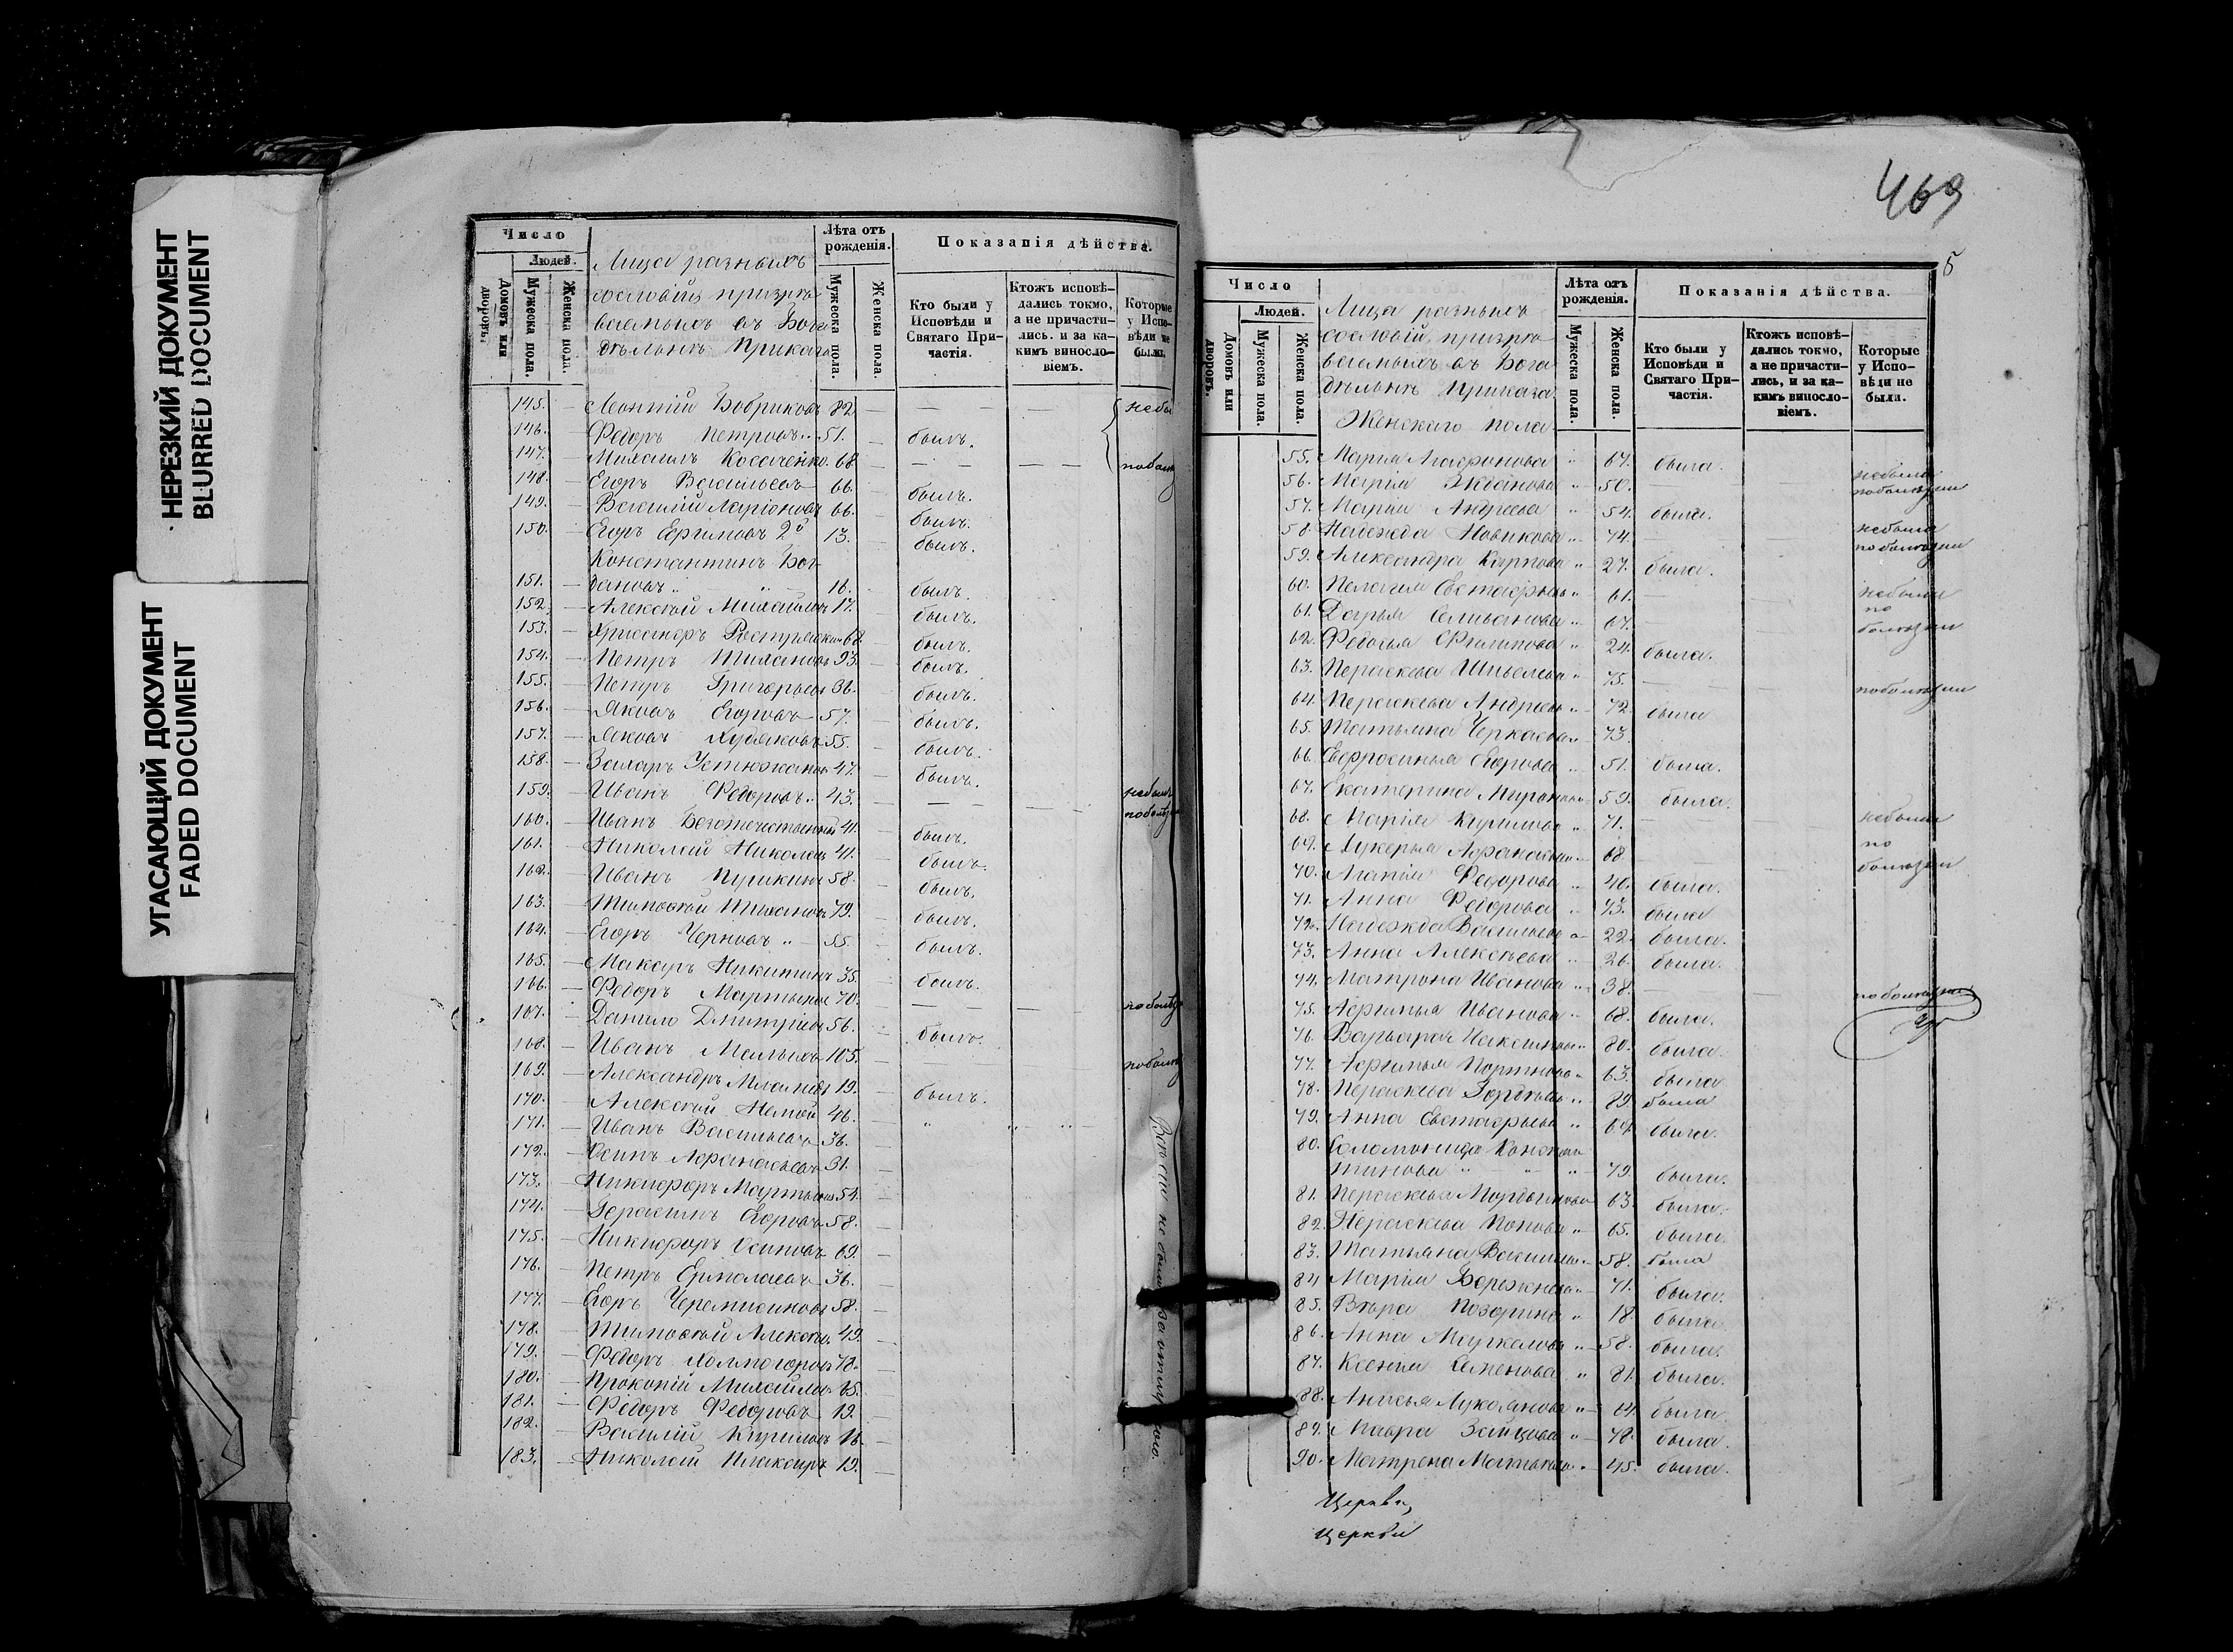 НЕРЕЗКИЙ ДОКУМЕНТ
BLURRED DOCUMENT
УГАСАЮЩИЙ ДОКУМЕНТ
FADED DOCUMENT
Число
Людей.
Домовъ или дворовъ.
Мужеска пола.
Женска пола.
Лица разныхъ
сословій призрѣ
ваемыхъ въ Бога
дѣльнѣ Приказа
Лѣта отъ рожденія.
Мужеска пола.
Женска пола.
Показанія дѣйства.
Кто были у Исповѣди и Святаго При-частія.
Ктожъ исповѣ-дались токмо, а не причасти-лись. и за ка-кимъ винослo-віемъ.
Которые у Испо-вѣди не были.
145. Леонтій Бобриковъ 82 — — небы
146. Федоръ Петровъ 51. былъ.
147. Михаилъ Косаченко. 68 — — поболѣ
148. Егоръ Васильевъ 66. былъ.
149. Василій Ларіоновъ 66. былъ.
150. Егоръ Ефимовъ 2й 13. былъ.
Константинъ Бог
151. дановъ 16. былъ.
152. Алексѣй Михайловъ 17. былъ.
153. Хрисанфъ 68 былъ.
154. Петръ Тихановъ 93. былъ.
155. Петръ Григорьевъ 36. былъ.
156. Яковъ Егоровъ 57. былъ.
157. Яковъ Худяковъ 55. былъ.
158. Захаръ Устюжанинъ 47. былъ.
159. Иванъ Федоровъ 43. — — небылъ поболѣз
160. Иванъ 41. былъ.
161. Николай Николаевъ 41. былъ.
162. Иванъ Пушкинъ 58. былъ.
163. Тимофѣй Тихановъ 79. былъ.
164. Егоръ Черновъ 55. былъ.
165. Макаръ Никитинъ 35. былъ.
166. Федоръ Мартыновъ 70. — — поболѣз
167. Данило Дмитріевъ 56. былъ.
168. Иванъ Малыхъ 105. — — поболѣз
169. Александръ 19. былъ.
170. Алексѣй Нѣмой 46.
171. Иванъ Васильевъ 36.
172. Осипъ Афанасьевъ 31.
173. Никифоръ Мартыновъ 54.
174. Герасимъ Егоровъ 58.
175. Никифоръ Осиповъ 69.
176. Петръ Ермолаевъ 36.
177. Егоръ Черемисиновъ 58.
178. Тимофѣй Алексѣевъ 49.
179. Федоръ Холмогоровъ 78.
180. Прокопій Михайловъ
181. Федоръ Федоровъ 19.
182. Василій Кириловъ 16.
183. Николай 19.
469
5
Число
Людей.
Домовъ или дворовъ.
Мужеска пола.
Женска пола.
Лица разныхъ
сословій, призрѣ
ваемыхъ въ Бога
дѣльнѣ Приказа.
Женскаго пола
Лѣта отъ рожденія.
Мужеска пола.
Женска пола.
Показанія дѣйства.
Кто были у Исповѣди и Святаго При-частія.
Ктожъ исповѣ-дались токмо, а не причасти-лись, и за ка-кимъ винослo-віемъ.
Которые у Испо-вѣди не были.
55. Марія Агафонова 67. была.
56. Марія Жданова 50. — небыла поболѣзни
57. Марія Андреева 54. была.
58. Надежда Новикова 74. — небыла поболѣзни
59. Александра Карпова 27. была.
60. Пелагея Евстафьева 61. — небыли
61. Дарья Селиванова 67. — по болѣзни
62. Федосья Филипова 24. была.
63. Пераскева 75. — поболѣзни
64. Пераскева Андреева 72. была
65. Татьяна Черкасова 73.
66. Евфросинья Егорова 51. была.
67. Екатерина Миронова 59. была.
68. Марія Кирилова 71. — небыли
69. Лукерья Афанасьева 68. — по болѣзни
70. Марія Федорова 40. была.
71. Анна Федорова 73. была
72. Надежда Васильева 22. была.
73. Анна Алексѣева 26. была.
74. Матрона Иванова 38. — поболѣзни
75. Афимья Иванова 68. была.
76. Варвара Максимова 80. была.
77. Афимья Портнова 63. была
78. Пераскева Гордѣева 89. была
79. Анна Евстафьева 67. была.
80. Соломонида Констан
тинова 79. была.
81. Пераскева Мартынова 63. была.
82. Пераскева Попова 65. была.
83. Татьяна Васильева 58. была
84. Марія Бережнева 71. была.
85. Вѣра Позорина 18. была.
86. Анна Маркелова 58. была.
87. Ксенія Семенова 81. была.
88. Анисья Лукоянова 64. была.
89. Мавра Зайцова 78. была.
90. Матрена 45. была.
Церкви,
Церкви